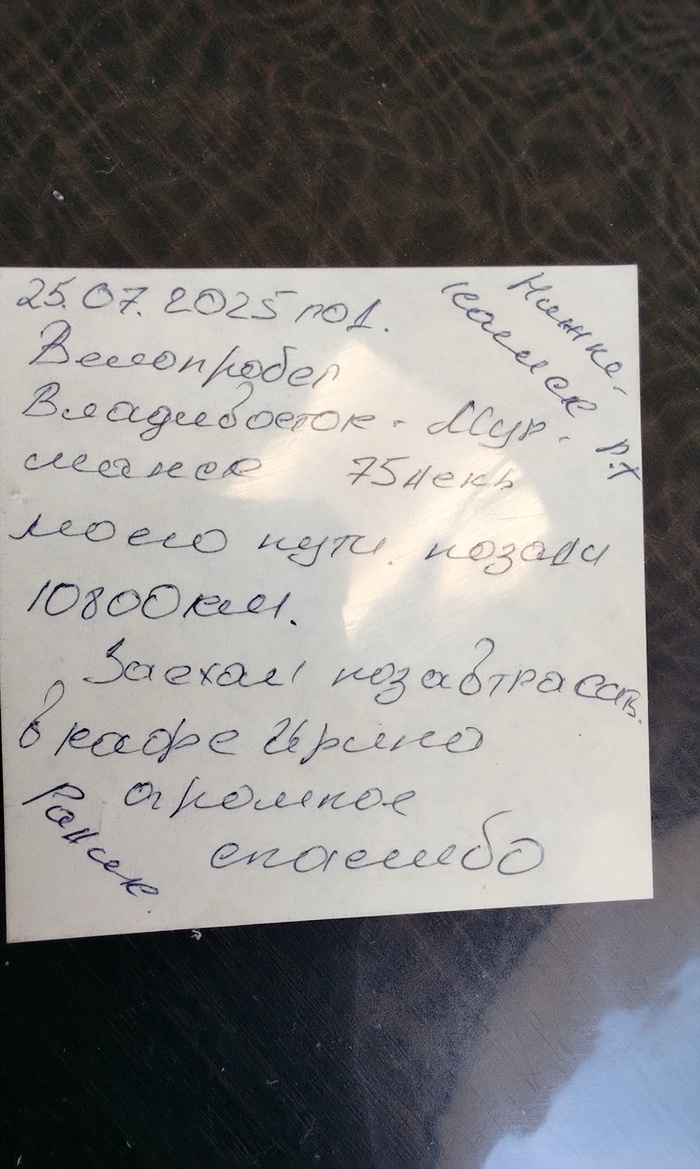 25.07.2025 год.
Велопробег
Владивосток - Мур-
манск 75 день
моего пути. позади
10800 км.
Заехал позавтракать
в кафе Ирино
огромное
спасибо
Нижне-
камск Р.Т